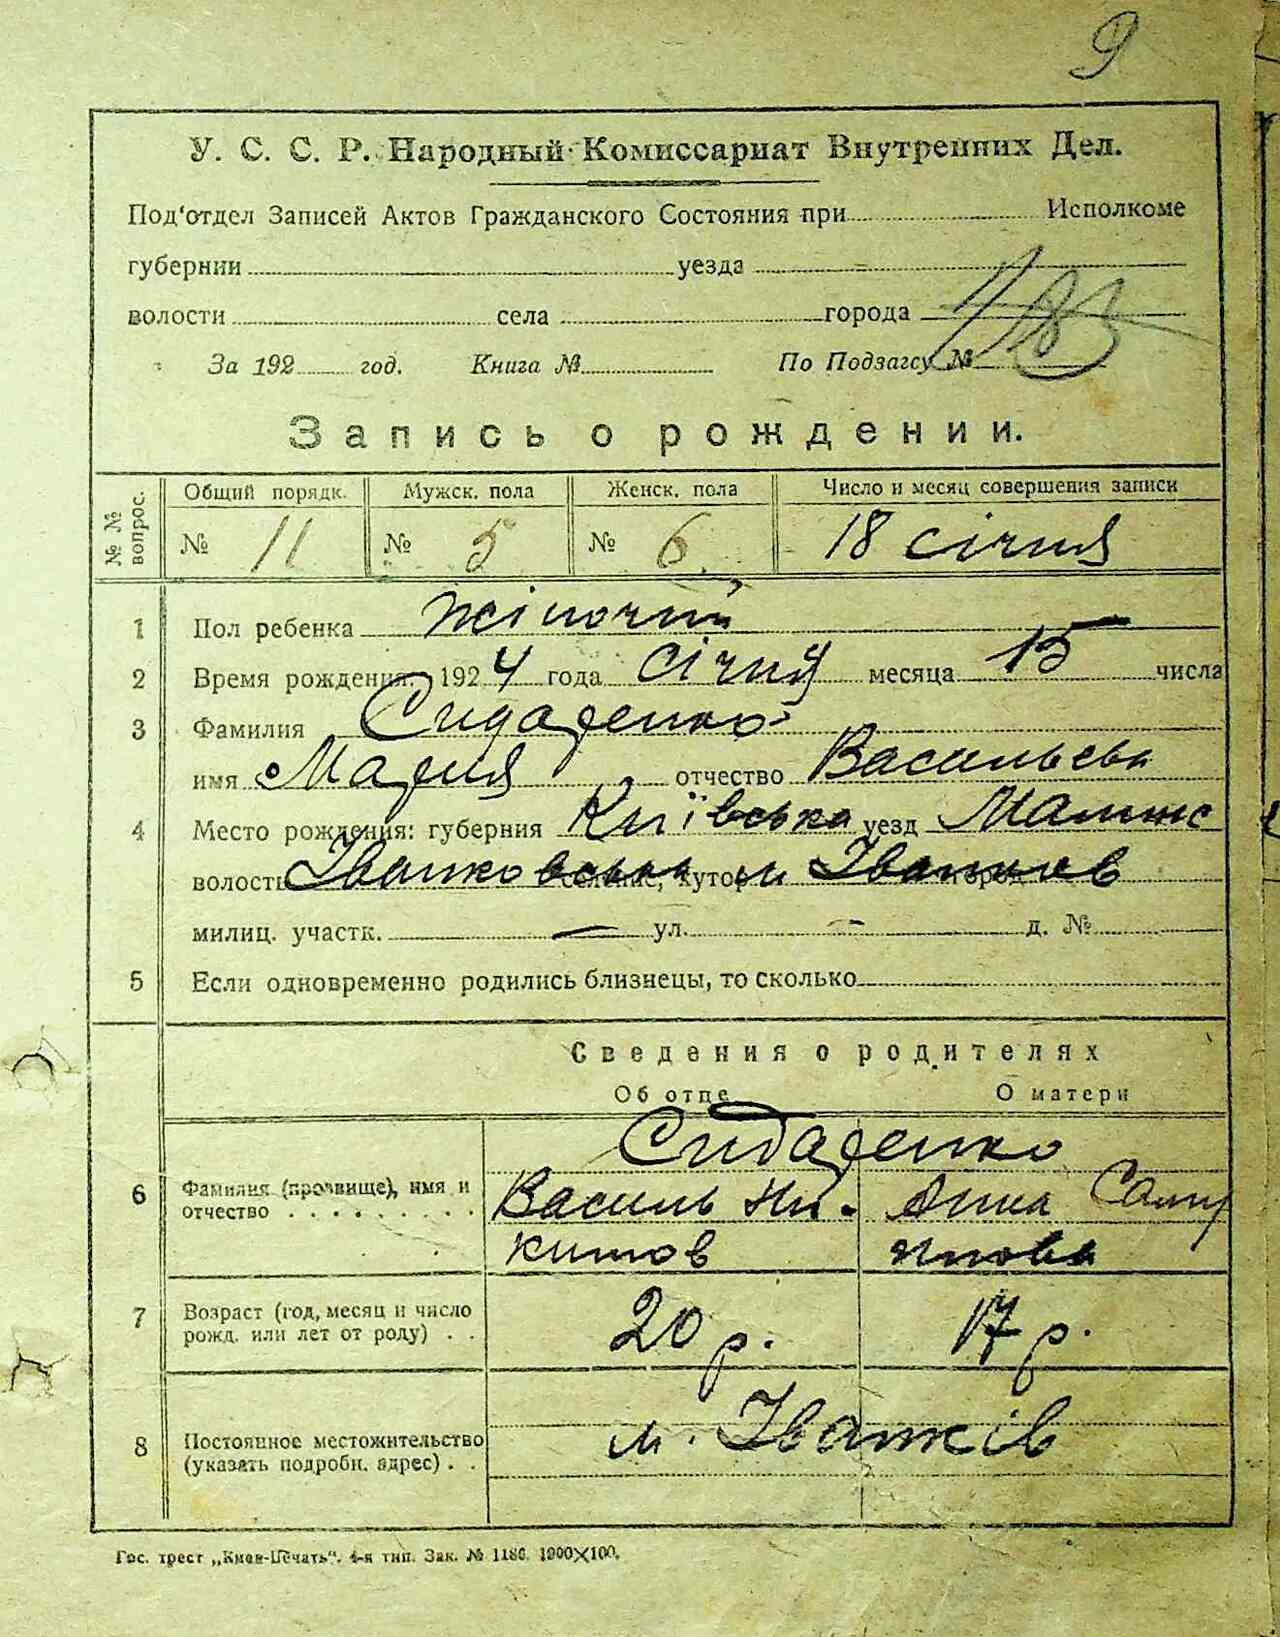 9
У. С. С. Р. Народный Комиссариат Внутренних Дел.
Под'отдел Записей Актов Гражданского Состояния при Исполкоме
губернии уезда
волости села города
183
За 192 год. Книга № По Подзагсу №
Запись о рождении.
№ № вопрос. Общий порядк. Мужск. пола Женск. пола Число и месяц совершения записи
№ 11 № 5 № 6 18 січня
1 Пол ребенка жіночий
2 Время рождения: 1924 года січня месяца 15 числа
3 Фамилия Сидаренко
имя Мария отчество Васильевн
4 Место рождения: губерния Київська уезд Малинс
волость Іванковська м Іванков
милиц. участк. — ул. — д. №
5 Если одновременно родились близнецы, то сколько
Сведения о родителях
Об отце О матери
Сидаренко
6 Фамилия (прозвище), имя и отчество Василь Ни- Анна
китов
7 Возраст (год, месяц и число рожд. или лет от роду) 20 р. 17 р.
8 Постоянное местожительство (указать подробн. адрес) м. Іванків
Гос. трест „Киев-Печать". 4-я тип. Зак. № 1186. 1000×100.